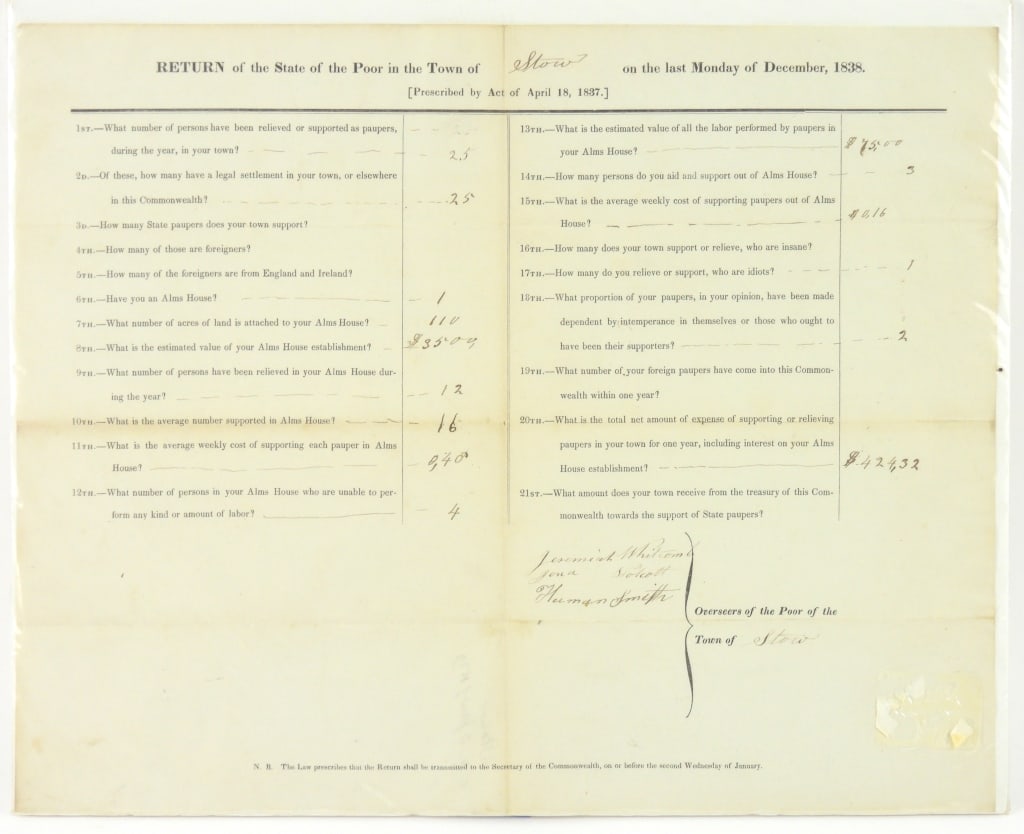 RETURN of the State of the Poor in the Town of Stow on the last Monday of December, 1838.
[Prescribed by Act of April 18, 1837.]
1ST.—What number of persons have been relieved or supported as paupers,
during the year, in your town? 25
2D.—Of these, how many have a legal settlement in your town, or elsewhere
in this Commonwealth? 25
3D.—How many State paupers does your town support?
4TH.—How many of those are foreigners?
5TH.—How many of the foreigners are from England and Ireland?
6TH.—Have you an Alms House? 1
7TH.—What number of acres of land is attached to your Alms House? 110
8TH.—What is the estimated value of your Alms House establishment? $3500,
9TH.—What number of persons have been relieved in your Alms House dur-
ing the year? 12
10TH.—What is the average number supported in Alms House? 16
11TH.—What is the average weekly cost of supporting each pauper in Alms
House?
12TH.—What number of persons in your Alms House who are unable to per-
form any kind or amount of labor? 4
13TH.—What is the estimated value of all the labor performed by paupers in
your Alms House? $75,00
14TH.—How many persons do you aid and support out of Alms House? 3
15TH.—What is the average weekly cost of supporting paupers out of Alms
House? $0,16
16TH.—How many does your town support or relieve, who are insane?
17TH.—How many do you relieve or support, who are idiots? 1
18TH.—What proportion of your paupers, in your opinion, have been made
dependent by intemperance in themselves or those who ought to
have been their supporters? 2
19TH.—What number of your foreign paupers have come into this Common-
wealth within one year?
20TH.—What is the total net amount of expense of supporting or relieving
paupers in your town for one year, including interest on your Alms
House establishment? $424,32
21ST.—What amount does your town receive from the treasury of this Com-
monwealth towards the support of State paupers?
Jeremiah Whitcomb
Smith
Overseers of the Poor of the
Town of Stow
N. B. The Law prescribes that the Return shall be transmitted to the Secretary of the Commonwealth, on or before the second Wednesday of January.